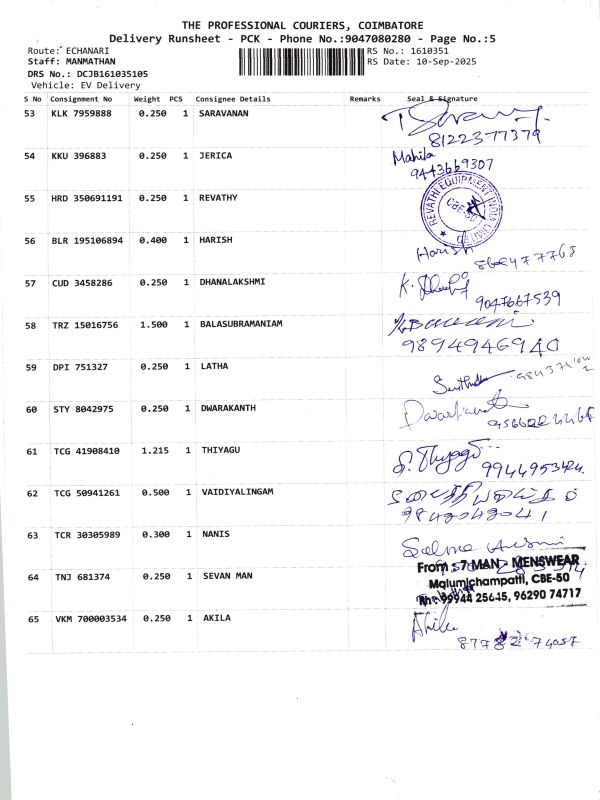 THE PROFESSIONAL COURIERS, COIMBATORE
Delivery Runsheet - PCK - Phone No.:9047080280 - Page No.:5
Route: ECHANARI RS No.: 1610351
Staff: MANMATHAN RS Date: 10-Sep-2025
DRS No.: DCJB161035105
Vehicle: EV Delivery
S No Consignment No Weight PCS Consignee Details Remarks Seal & Signature
53 KLK 7959888 0.250 1 SARAVANAN
8122377379
54 KKU 396883 0.250 1 JERICA Mahila
9443669307
55 HRD 350691191 0.250 1 REVATHY REVATHI EQUIPMENT INDIA LIMITED
CBE-50
56 BLR 195106894 0.400 1 HARISH Harish
57 CUD 3458286 0.250 1 DHANALAKSHMI K.
9047667539
58 TRZ 15016756 1.500 1 BALASUBRAMANIAM
9894946940
59 DPI 751327 0.250 1 LATHA
60 STY 8042975 0.250 1 DWARAKANTH
61 TCG 41908410 1.215 1 THIYAGU S. Thiyagu
62 TCG 50941261 0.500 1 VAIDIYALINGAM
9842042041
63 TCR 30305989 0.300 1 NANIS Selva
64 TNJ 681374 0.250 1 SEVAN MAN From : 7 MAN MENSWEAR
Malumichampatti, CBE-50
Ph: 99944 25645, 96290 74717
65 VKM 700003534 0.250 1 AKILA Akila